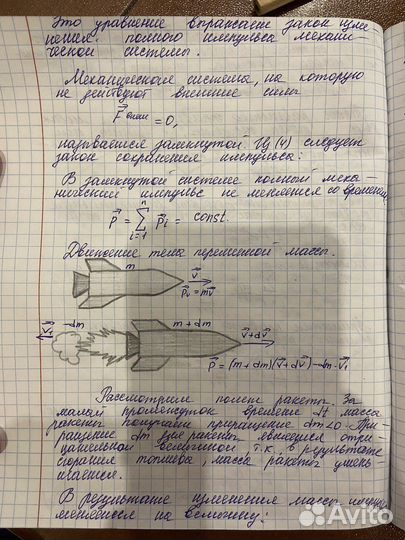 Это уравнение выражает закон изме
нения полного импульса механи-
ческой системы.
Механическая система, на которую
не действуют внешние силы
F⃗ внеш = 0,
называется замкнутой. Из (4) следует
закон сохранения импульса:
В замкнутой системе полный меха-
нический импульс не меняется со временем
P⃗ = ∑ⁿᵢ₌₁ p⃗ᵢ = const.
Движение тела переменной массы.
m
v⃗
p⃗ᵥ = mv⃗
v⃗₁
-dm
m + dm
v⃗+dv⃗
p⃗ = (m+dm)(v⃗+dv⃗)-dm·v⃗₁
Рассмотрим полет ракеты. За
малый промежуток времени dt масса
ракеты получает приращение dm<0. При-
ращение dm для ракеты является отри-
цательной величиной т.к. в результате
сгорания топлива, масса ракеты умень-
шается.
В результате изменения массы, импульс
меняется на величину:
Avito